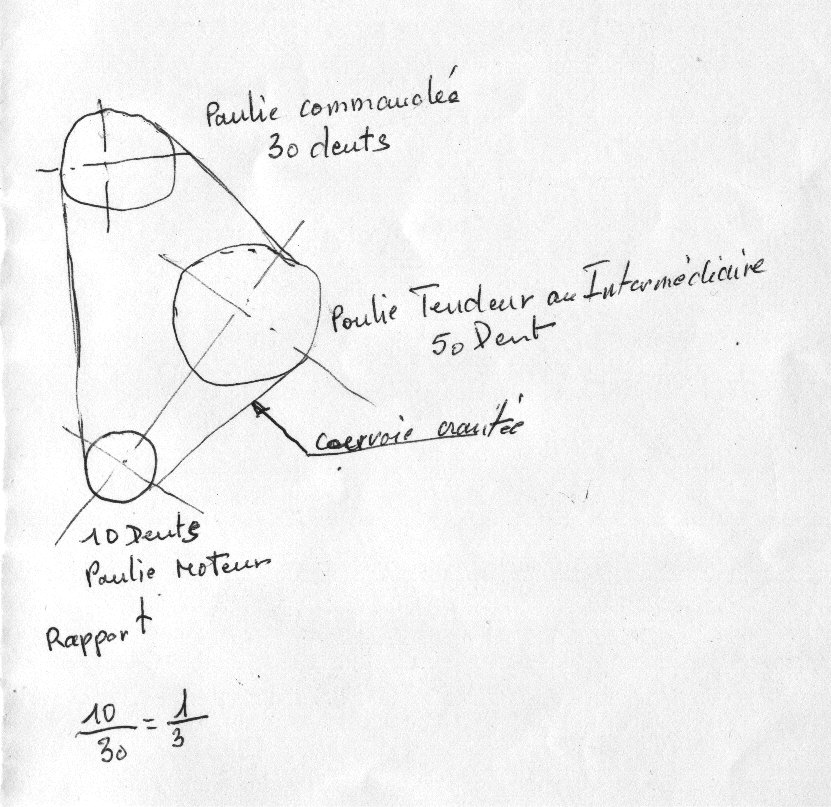 Poulie commandée
30 dents
Poulie Tendeur ou Intermédiaire
50 Dent
Courroie crantée
10 Dents
Poulie Moteur
Rapport
10/30 = 1/3